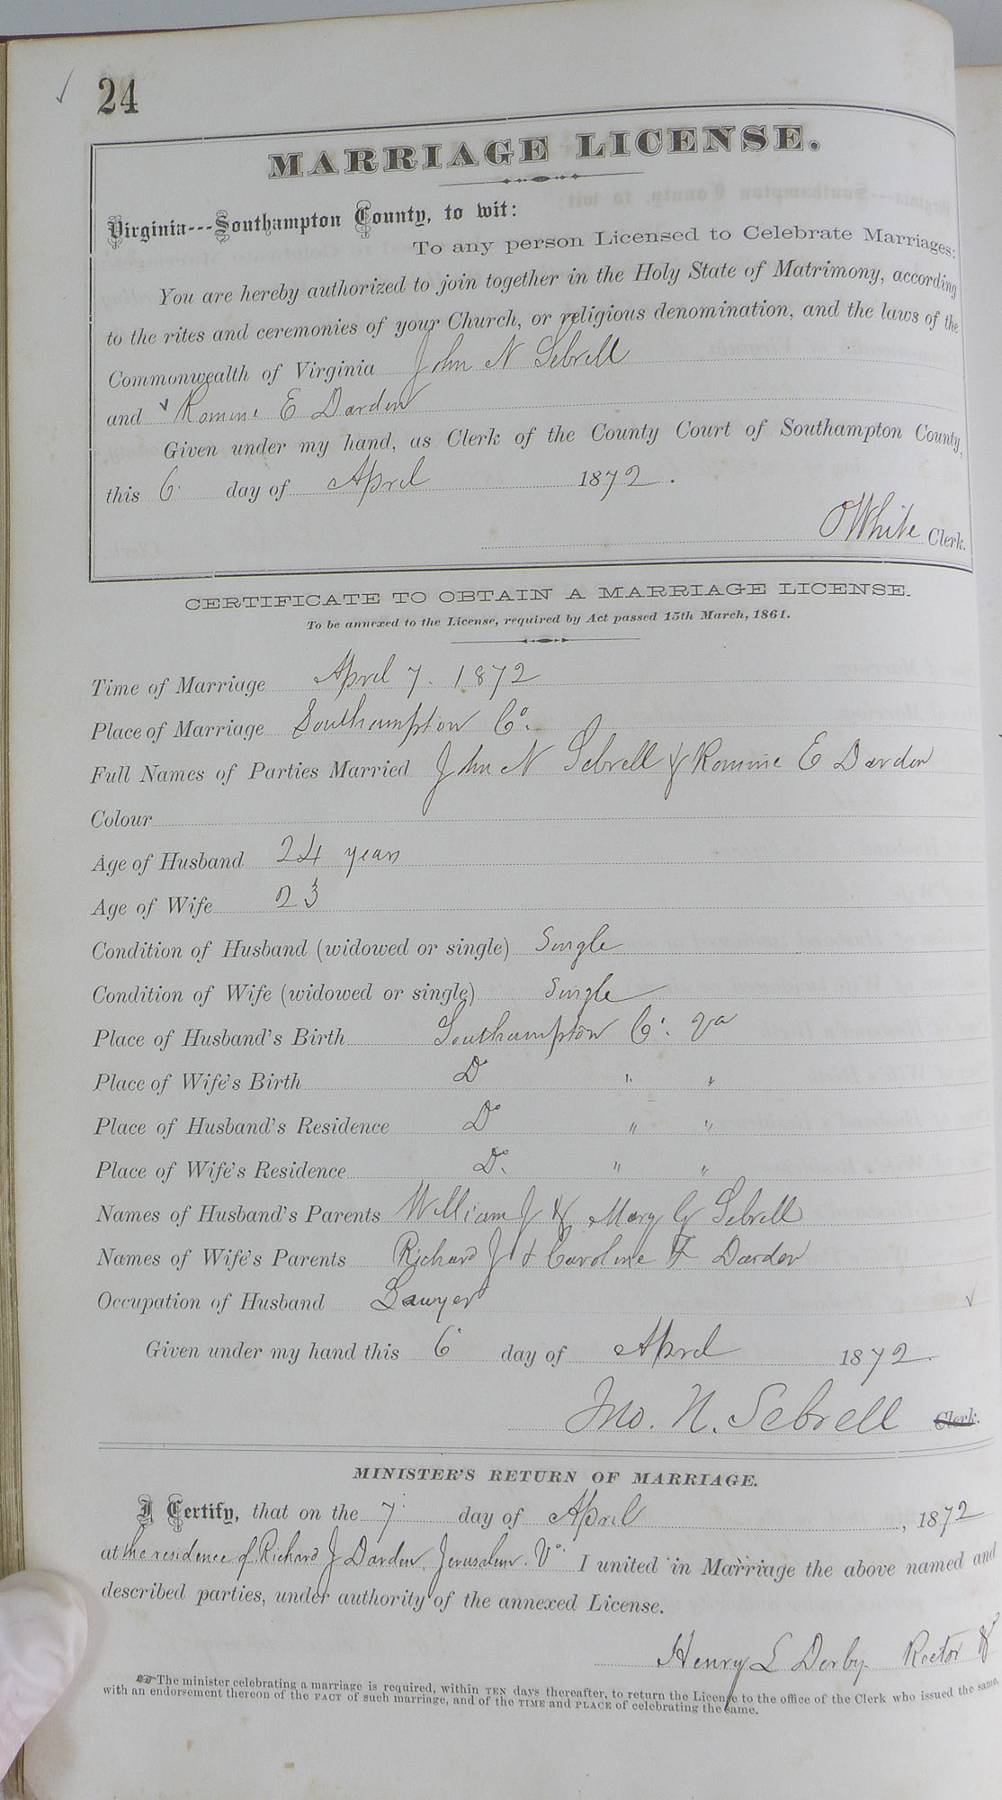 24
MARRIAGE LICENSE.
Virginia---Southampton County, to wit:
To any person Licensed to Celebrate Marriages:
You are hereby authorized to join together in the Holy State of Matrimony, according
to the rites and ceremonies of your Church, or religious denomination, and the laws of the
Commonwealth of Virginia John N Sebrell
and Romine E Darden
Given under my hand, as Clerk of the County Court of Southampton County,
this 6 day of April 1872.
White Clerk.
CERTIFICATE TO OBTAIN A MARRIAGE LICENSE.
To be annexed to the License, required by Act passed 15th March, 1861.
Time of Marriage April 7. 1872
Place of Marriage Southampton Co.
Full Names of Parties Married John N Sebrell & Romine E Darden
Colour
Age of Husband 24 years
Age of Wife 23
Condition of Husband (widowed or single) Single
Condition of Wife (widowed or single) Single
Place of Husband's Birth Southampton Co. Va
Place of Wife's Birth Do " "
Place of Husband's Residence Do " "
Place of Wife's Residence Do " "
Names of Husband's Parents William J & Mary G Sebrell
Names of Wife's Parents Richard J & Caroline F Darden
Occupation of Husband Lawyer
Given under my hand this 6 day of April 1872.
Jno. N. Sebrell Clerk.
MINISTER'S RETURN OF MARRIAGE.
I Certify, that on the 7 day of April, 1872
at the residence of Richard J Darden, Jerusalem. Va. I united in Marriage the above named and
described parties, under authority of the annexed License.
Henry L Derby Rector
The minister celebrating a marriage is required, within TEN days thereafter, to return the License to the office of the Clerk who issued the same,
with an endorsement thereon of the FACT of such marriage, and of the TIME and PLACE of celebrating the same.